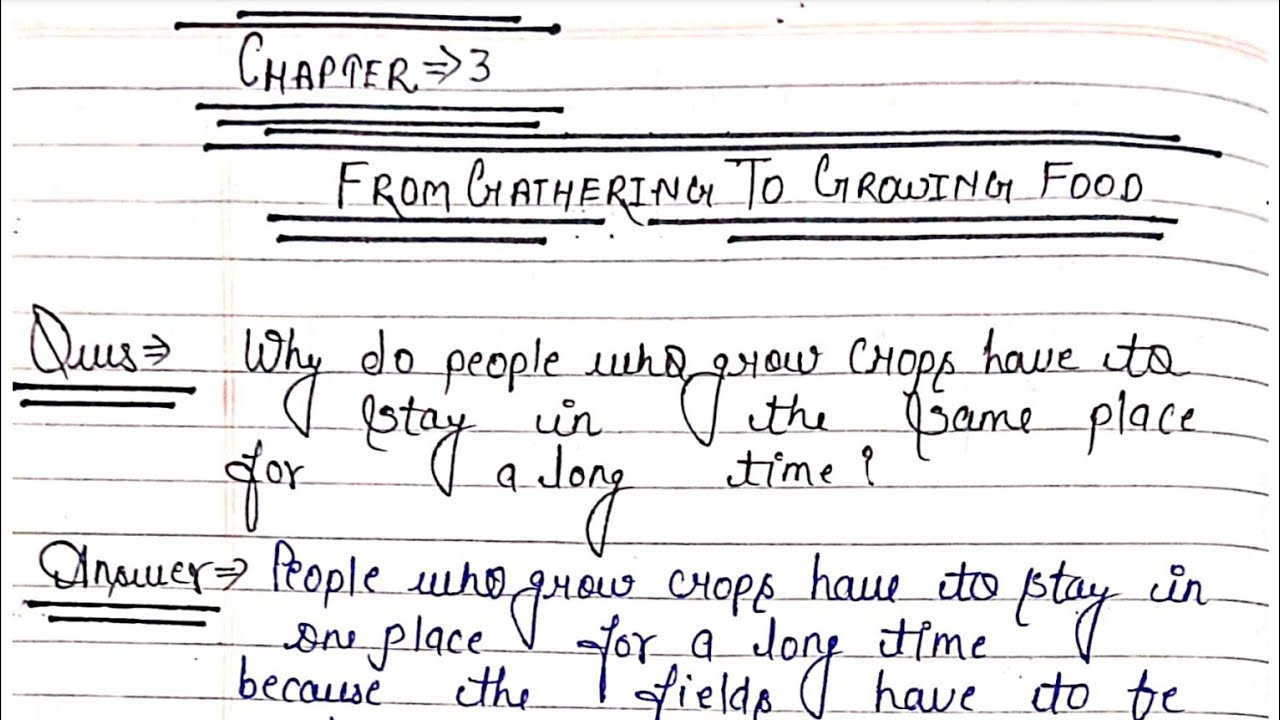 CHAPTER ⇒ 3
FROM GATHERING TO GROWING FOOD
Ques ⇒ Why do people who grow crops have to
stay in the same place
for a long time?
Answer ⇒ People who grow crops have to stay in
one place for a long time
because the fields have to be